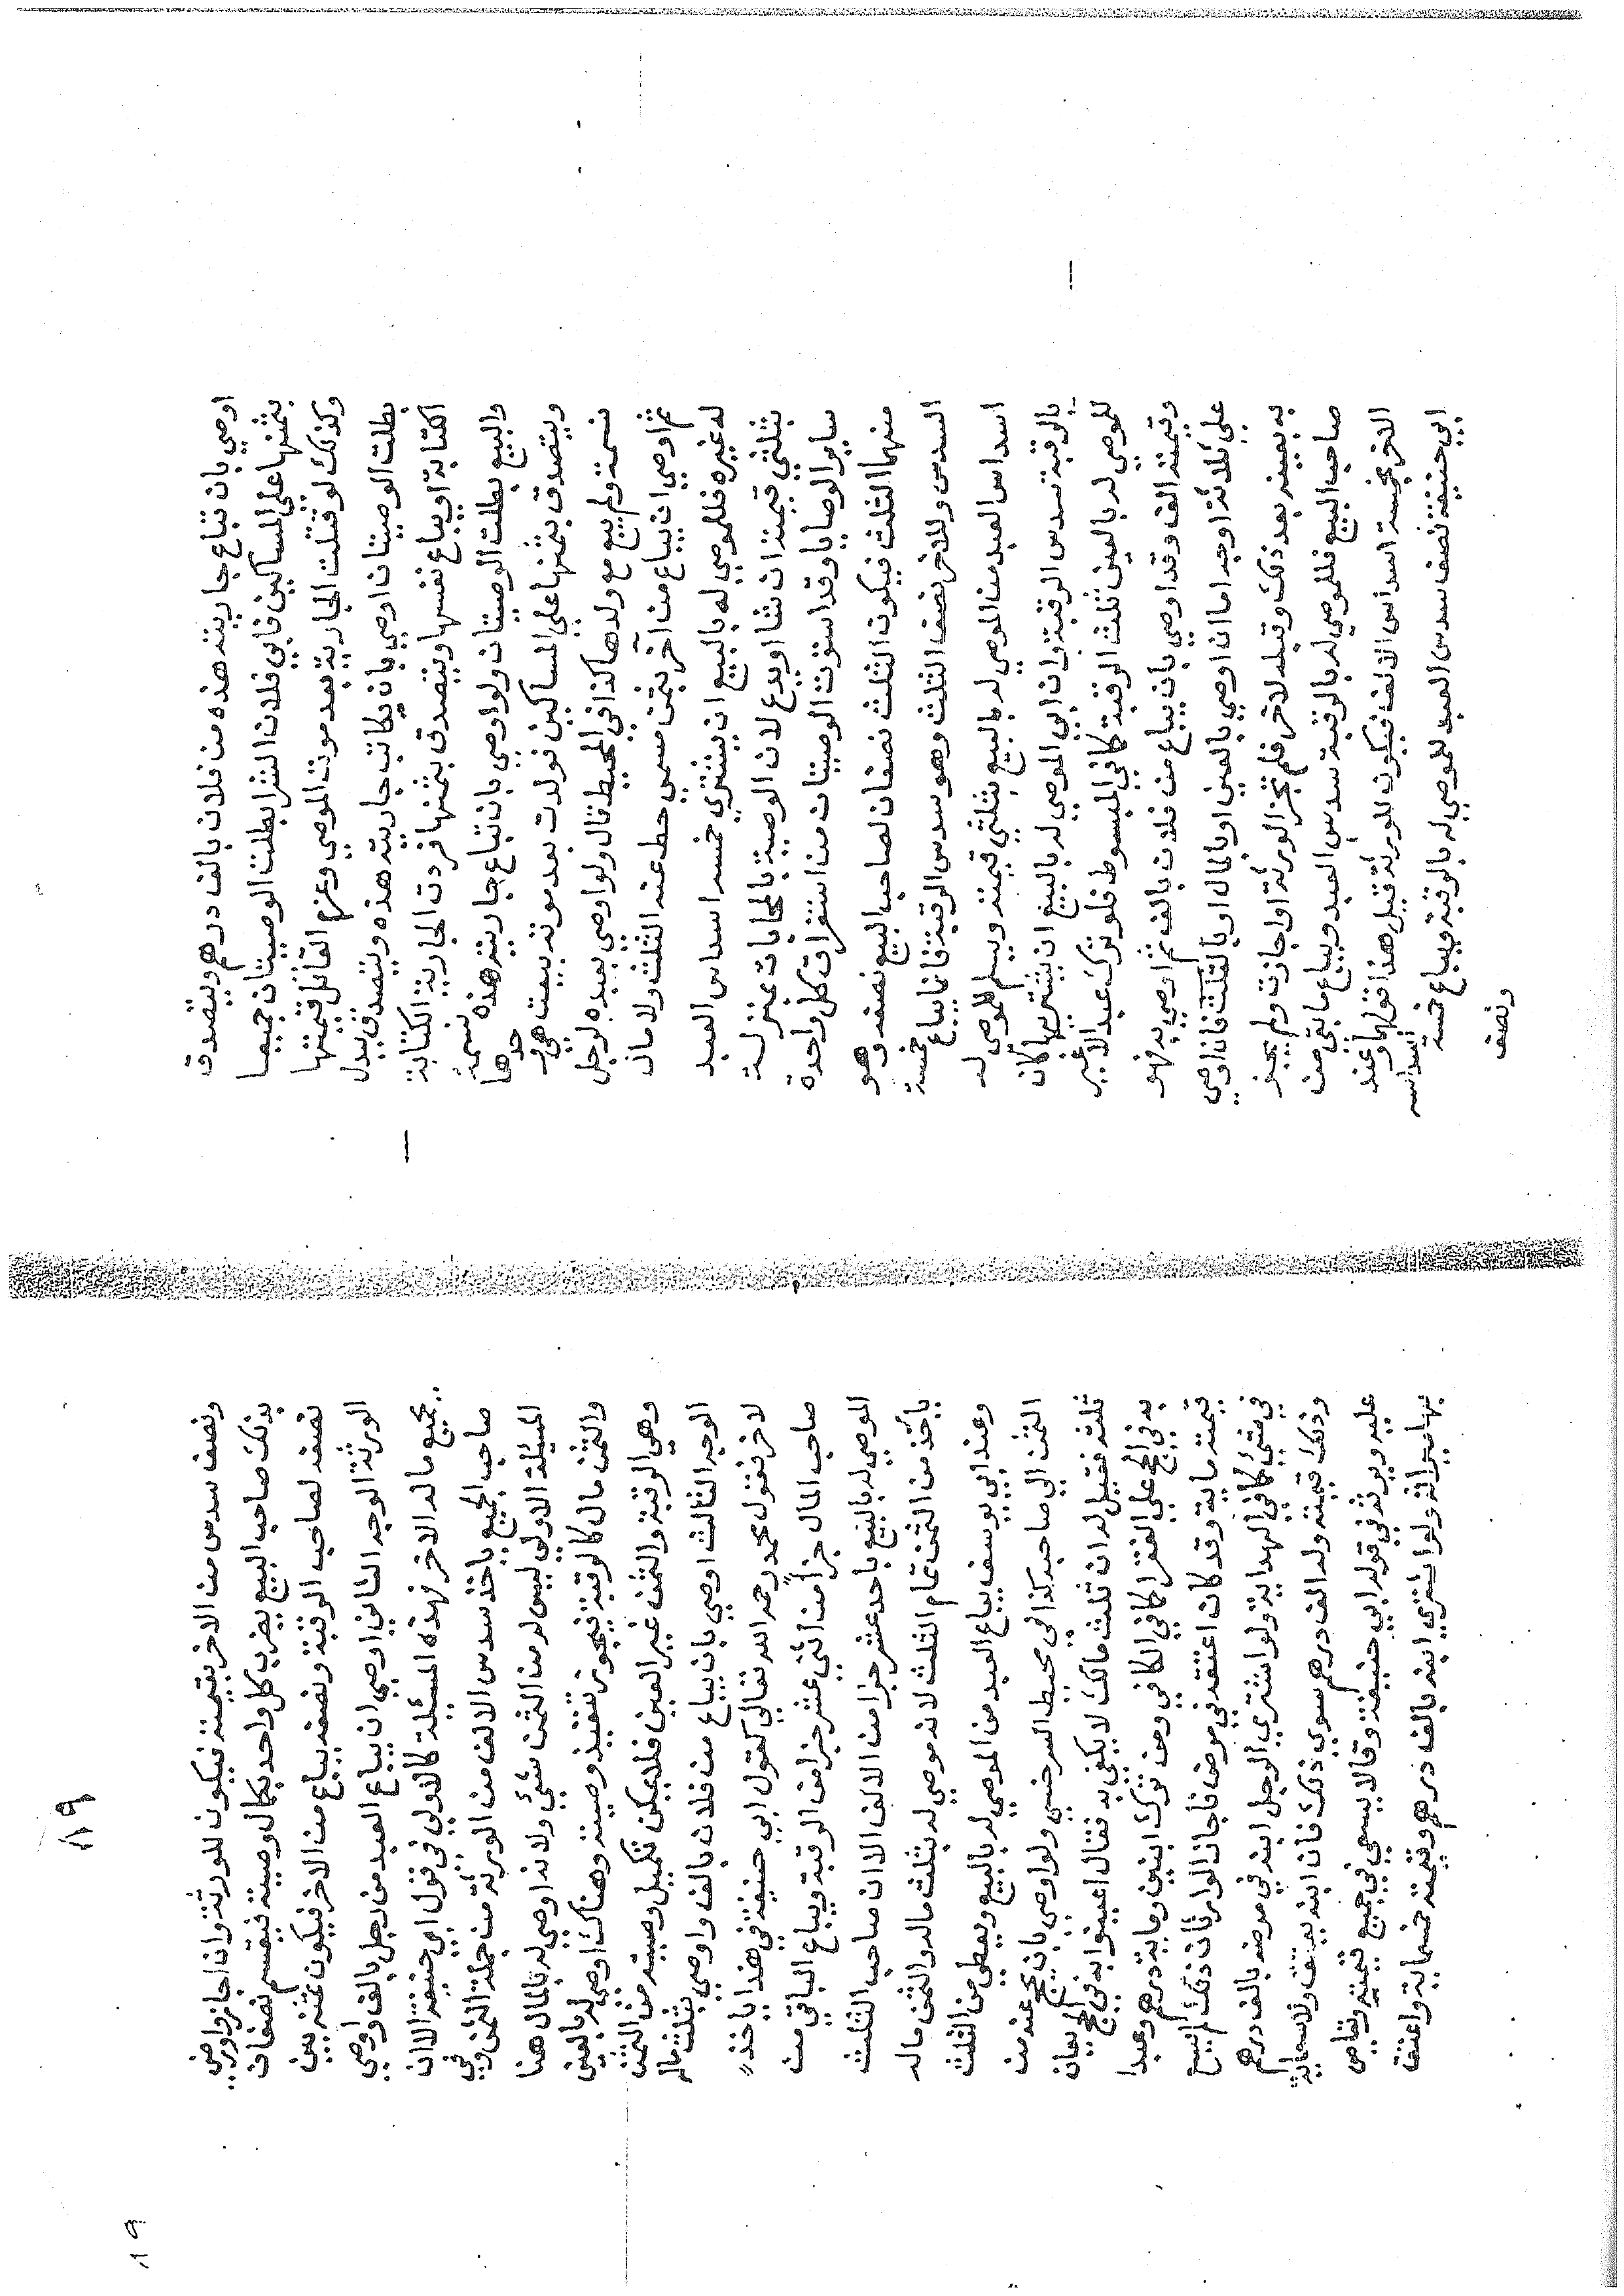 اوصي بان تباع جاريته هذه من فلان بالف درهم ويتصدق
بثمنها على المساكين فابي فلان الشرا بطلت الوصيتان جميعا
وكذلك لو قتلت الجارية بعد موت الموصي وغرم القاتل قيمتها
بطلت الوصيتان اوصي بان يكاتب جاريته هذه ويتصدق ببدل
الكتابة او يباع نفسها ويتصدق بثمنها فردت الجارية الكتابة
والبيع بطلت الوصيتان ولو اوصي بان تباع جاريته هذه نسمة
ويتصدق بثمنها علي المساكين فولدت بعد موته بيعت هي وحدها
نسمة ولم يبع مع ولدها كذا في المحيط قال ولو اوصي بعبده لرجل
ثم اوصي ان يباع من آخر بثمن مسمي حط عنه الثلث ولا مال
له غيره فللموصي له بالبيع ان يشتري خمسه اسداس العبد
بثلثي قيمته ان شا او يدع لان الوصية بالمحابات بمنزلة
ساير الوصايا وقد استوت الوصيتان من استغراق كل واحدة
منهما الثلث فيكون الثلث نصفان لصاحب البيع نصفه وهو
السدس وللاخر نصف الثلث وهو سدس الرقبة فانما يباع خمسة
اسداس العبد من الموصي له بالبيع بثلثي قيمته ويسلم للموصي له
بالرقبة سدس الرقبة وان ابي الموصي له بالبيع ان يشتريها كان
للموصي له بالعين ثلث الرقبة كما في المبسوط فلو ترك عبد الا غير
وقيمته الف وقد اوصي بأن يباع من فلان بالف ثم اوصي به فهو
علي ثلاثة اوجه اما ان اوصي بالعين او بالمال او بالثلث فان اوصي
به بعينه بعد ذلك وقبله لاخر فلم تجز الورثة او اجازت ولم يجز
صاحب البيع فللموصي له بالرقبة سدس العبد ويباع ما بقي من
الاخر بخمسة اسداس الالف فيكون للورثة قيل هذا قولهما وعند
ابي حنيفة نصف سدس العبد للموصي له بالرقبة ويباع خمسة اسداسه
ونصف
١٩
ونصف سدس من الاخر بقيمته فيكون للورثة وان اجازوا ورضي
بذلك صاحب البيع يضرب كل واحد بكمال وصيته فيقسم نصفان
نصفه لصاحب الرقبة ونصفه يباع من الاخر فيكون ثمنه بين
الورثة الوجه الثاني اوصي ان يباع العبد من رجل بالف واوصي
بجميع ماله الاخر فهذه المسئلة كالاولي في قول ابي حنيفة الا ان
صاحب الجميع يأخذ سدس الالف من الورثة من جملة الثمن وفي
المسئلة الاولي ليس له من الثمن شئ ولانه اوصي له بالمال هنا
والثمن مال كالرقبة فيجوز تنفيذ وصيته وهناك اوصي له بالعين
وهي الرقبة والثمن غير العين فلا يمكن تكميل وصيته من الثمن
الوجه الثالث اوصي بان يباع من فلان بالف واوصي بثلث ماله
لاخر نقول محمد رحمه الله تعالي كقول ابي حنيفة في هذا ياخذ
صاحب المال جزأ من اثني عشر جزا من الرقبة ويباع الباقي من
الموصي له بالبيع باحد عشر جزا من الالف الا ان صاحب الثلث
يأخذ من الثمن تمام الثلث لانه موصي له بثلث ماله والثمن ماله
وعند ابي يوسف يباع العبد من الموصي له بالبيع ويعطي من الثلث
الثمن الي صاحبه كذا في محيط السرخسي ولو اوصي بان يحج عنه من
ثلثه فقيل له ان ثلث مالك لا يكفي به فقال اعينوا به في الحج يعان
به في الحج على الفقرا كما في الكافي ومن ترك ابنين وماية درهم وعبدا
قيمته ماية وقد كان اعتقه في مرض فاجاز الوارثان ذلك لم يسع
في شئ كما في الهداية ولو اشتري الرجل ابنه في مرضه بالف درهم
وذلك قيمته وله الف درهم سوي ذلك فأن ابنه يعتق ولا سعاية
عليه ويرثه في قول ابي حنيفة وقالا يسعي في جميع قيمته وتقاص
بها ميراثه ولو اشتري ابنه بالف درهم وقيمته خمسماية واعتق
١٩